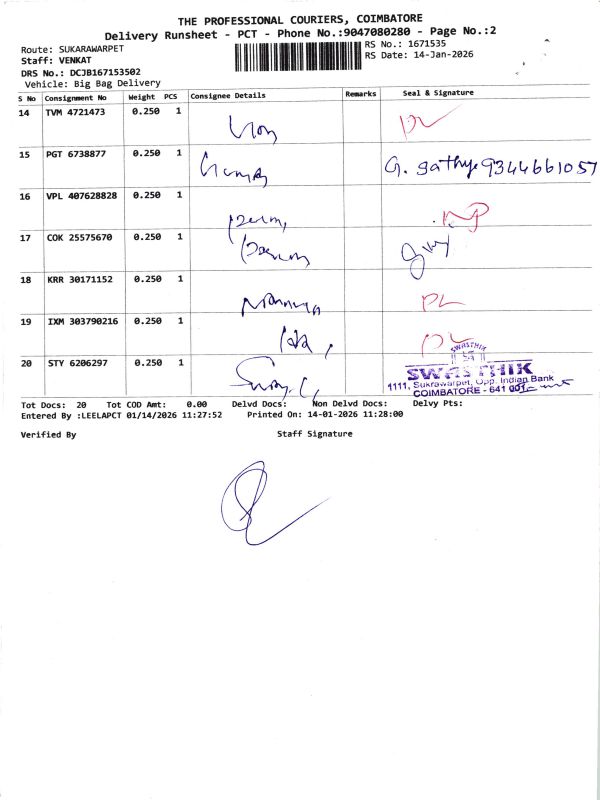 THE PROFESSIONAL COURIERS, COIMBATORE
Delivery Runsheet - PCT - Phone No.:9047080280 - Page No.:2
Route: SUKARAWARPET
RS No.: 1671535
Staff: VENKAT
RS Date: 14-Jan-2026
DRS No.: DCJB167153502
Vehicle: Big Bag Delivery
S No Consignment No Weight PCS Consignee Details Remarks Seal & Signature
14 TVM 4721473 0.250 1
15 PGT 6738877 0.250 1 G. Sathya 9344661057
16 VPL 407628828 0.250 1
17 COK 25575670 0.250 1
18 KRR 30171152 0.250 1 PL
19 IXM 303790216 0.250 1
20 STY 6206297 0.250 1
SWASTHIK
SWASTHIK
1111, Sukrawarpet, Opp. Indian Bank
COIMBATORE - 641 001
Tot Docs: 20 Tot COD Amt: 0.00 Delvd Docs: Non Delvd Docs: Delvy Pts:
Entered By :LEELAPCT 01/14/2026 11:27:52 Printed On: 14-01-2026 11:28:00
Verified By Staff Signature